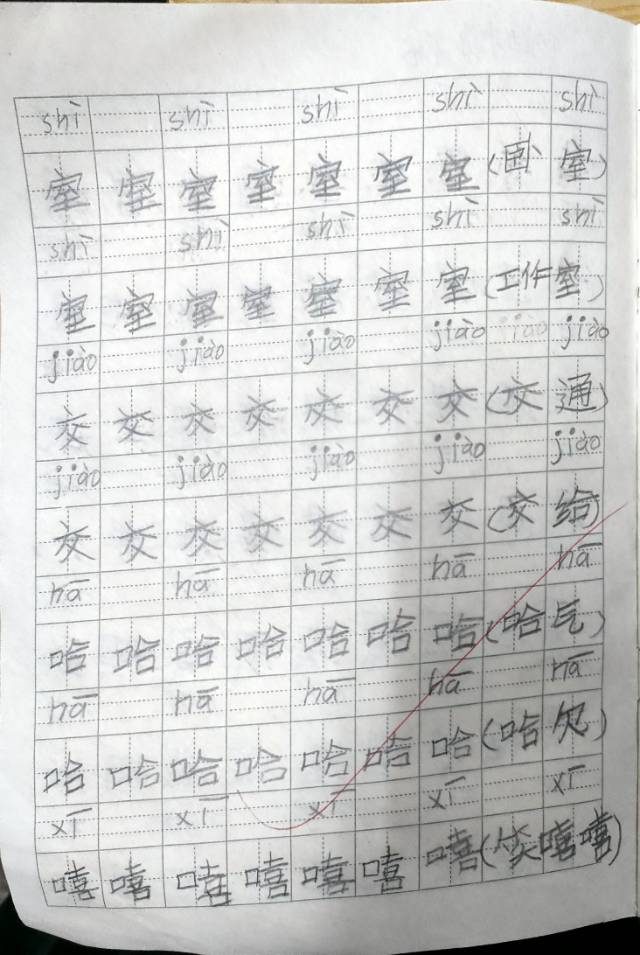 shì shì shì shì shì
室 室 室 室 室 室 室 (卧 室)
shì shì shì shì shì
室 室 室 室 室 室 室 (工作室)
jiāo jiāo jiāo jiāo jiāo jiāo
交 交 交 交 交 交 交 (交 通)
jiāo jiāo jiāo jiāo jiāo
交 交 交 交 交 交 交 (交 给)
hā hā hā hā hā
哈 哈 哈 哈 哈 哈 哈 (哈 气)
hā hā hā hā hā
哈 哈 哈 哈 哈 哈 哈 (哈 欠)
xī xī xī xī xī
嘻 嘻 嘻 嘻 嘻 嘻 嘻 (笑 嘻 嘻)